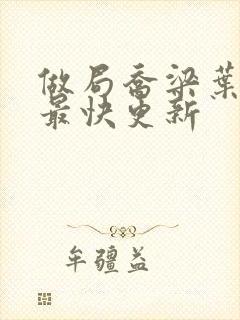 做局乔梁葉
最快更新
牟疆益